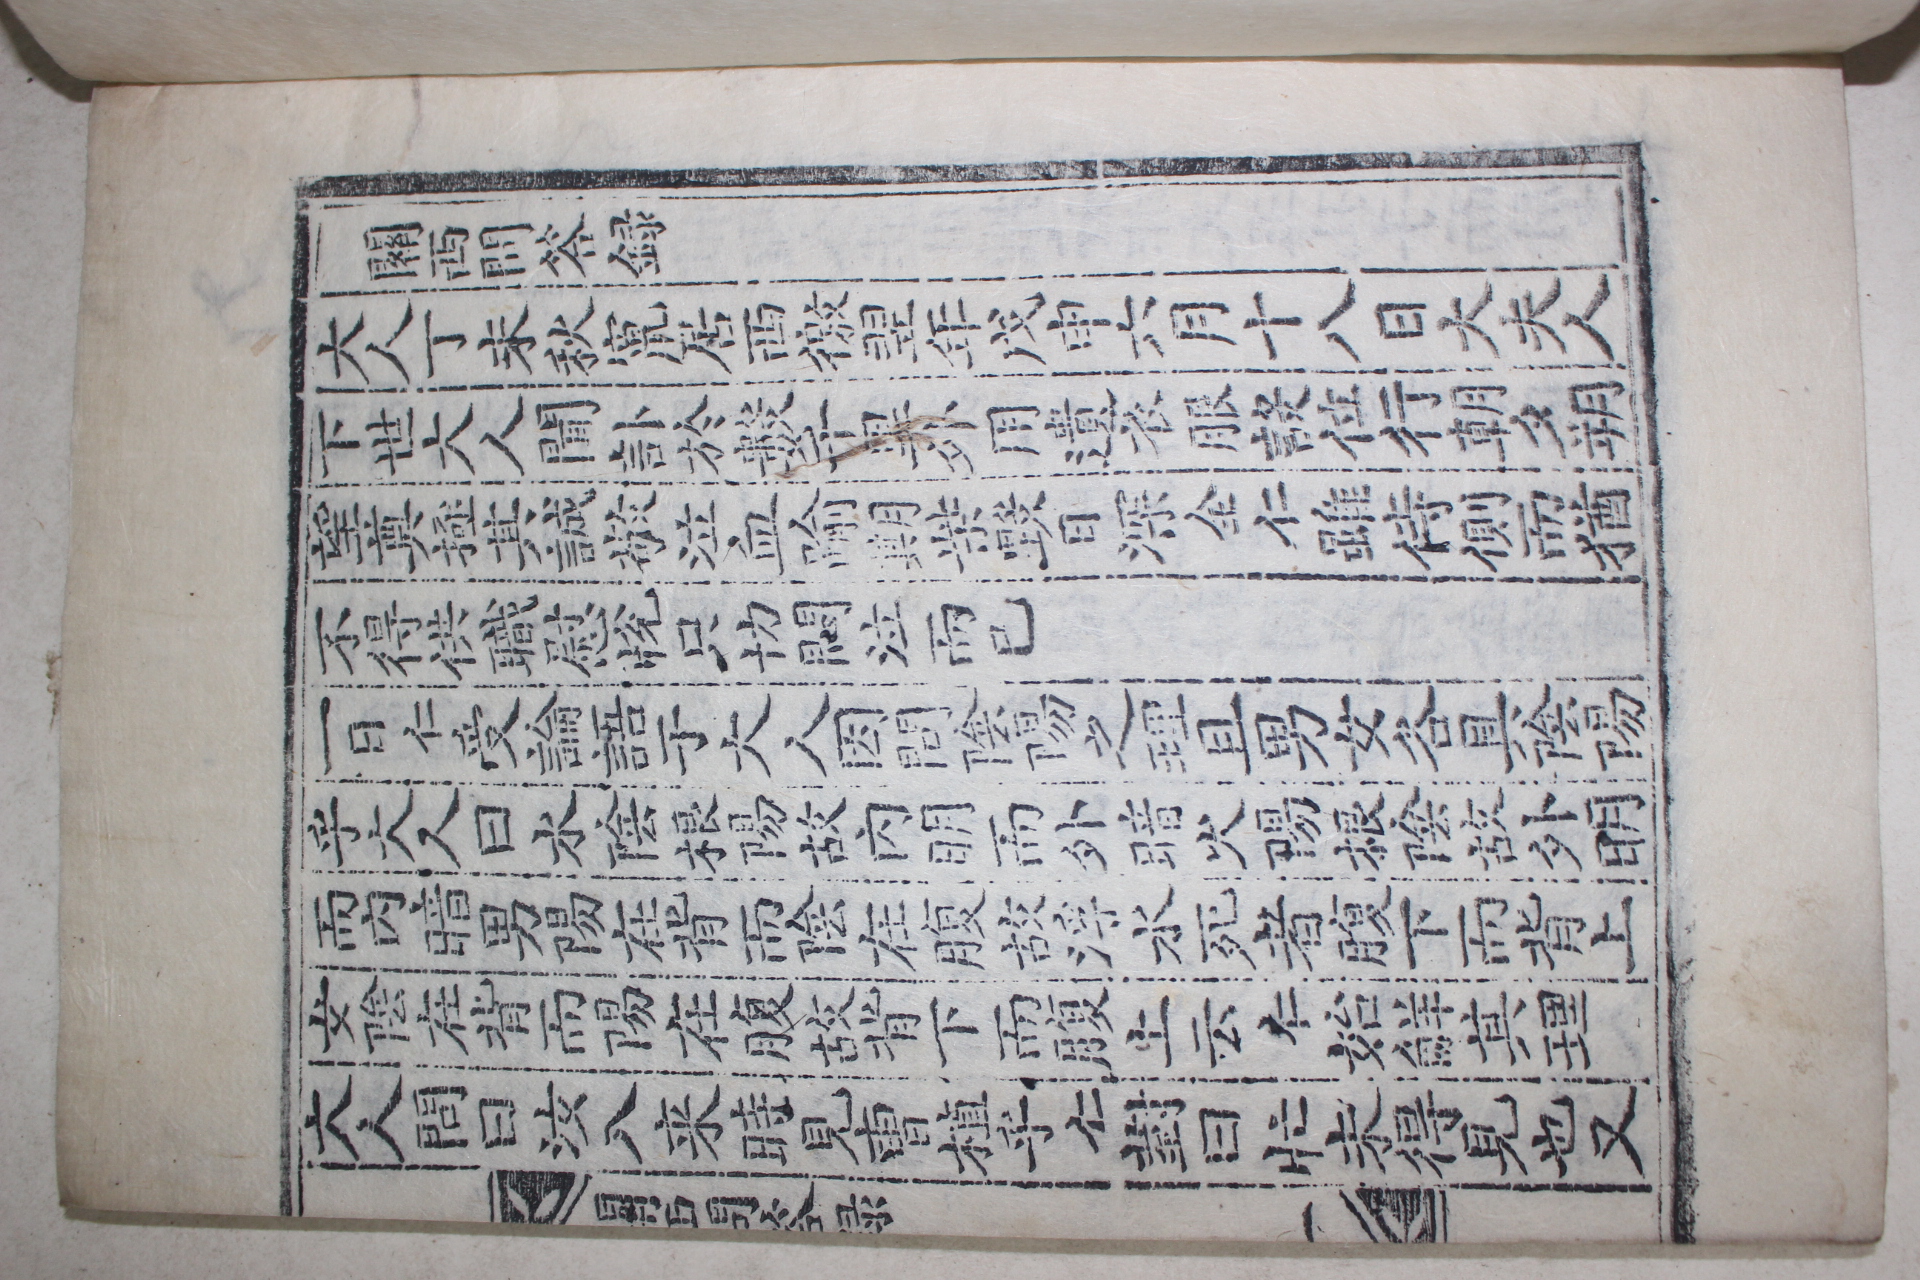 關西問答録
大人丁未秋竄居西徼翌年戊申六月十八日大夫人
下世大人聞訃於數千里外用遺衣服設位行朝夕朔
望奠極其誠敬泣血踰期柴毁日深全仁雖侍側而猶
不得供職慰悅只切悶泣而已
一日仁受論語于大人因問陰陽之理且男女各具陰陽
乎大人曰水陰根陽故内明而外暗火陽根陰故外明
而内暗男陽在背而陰在腹故浮水死者腹下而背上
女陰在背而陽在腹故背下而腹上云仁始觧其理
大人問曰汝入来時見曺植乎仁對曰忙未得見也又
關西問答録
一